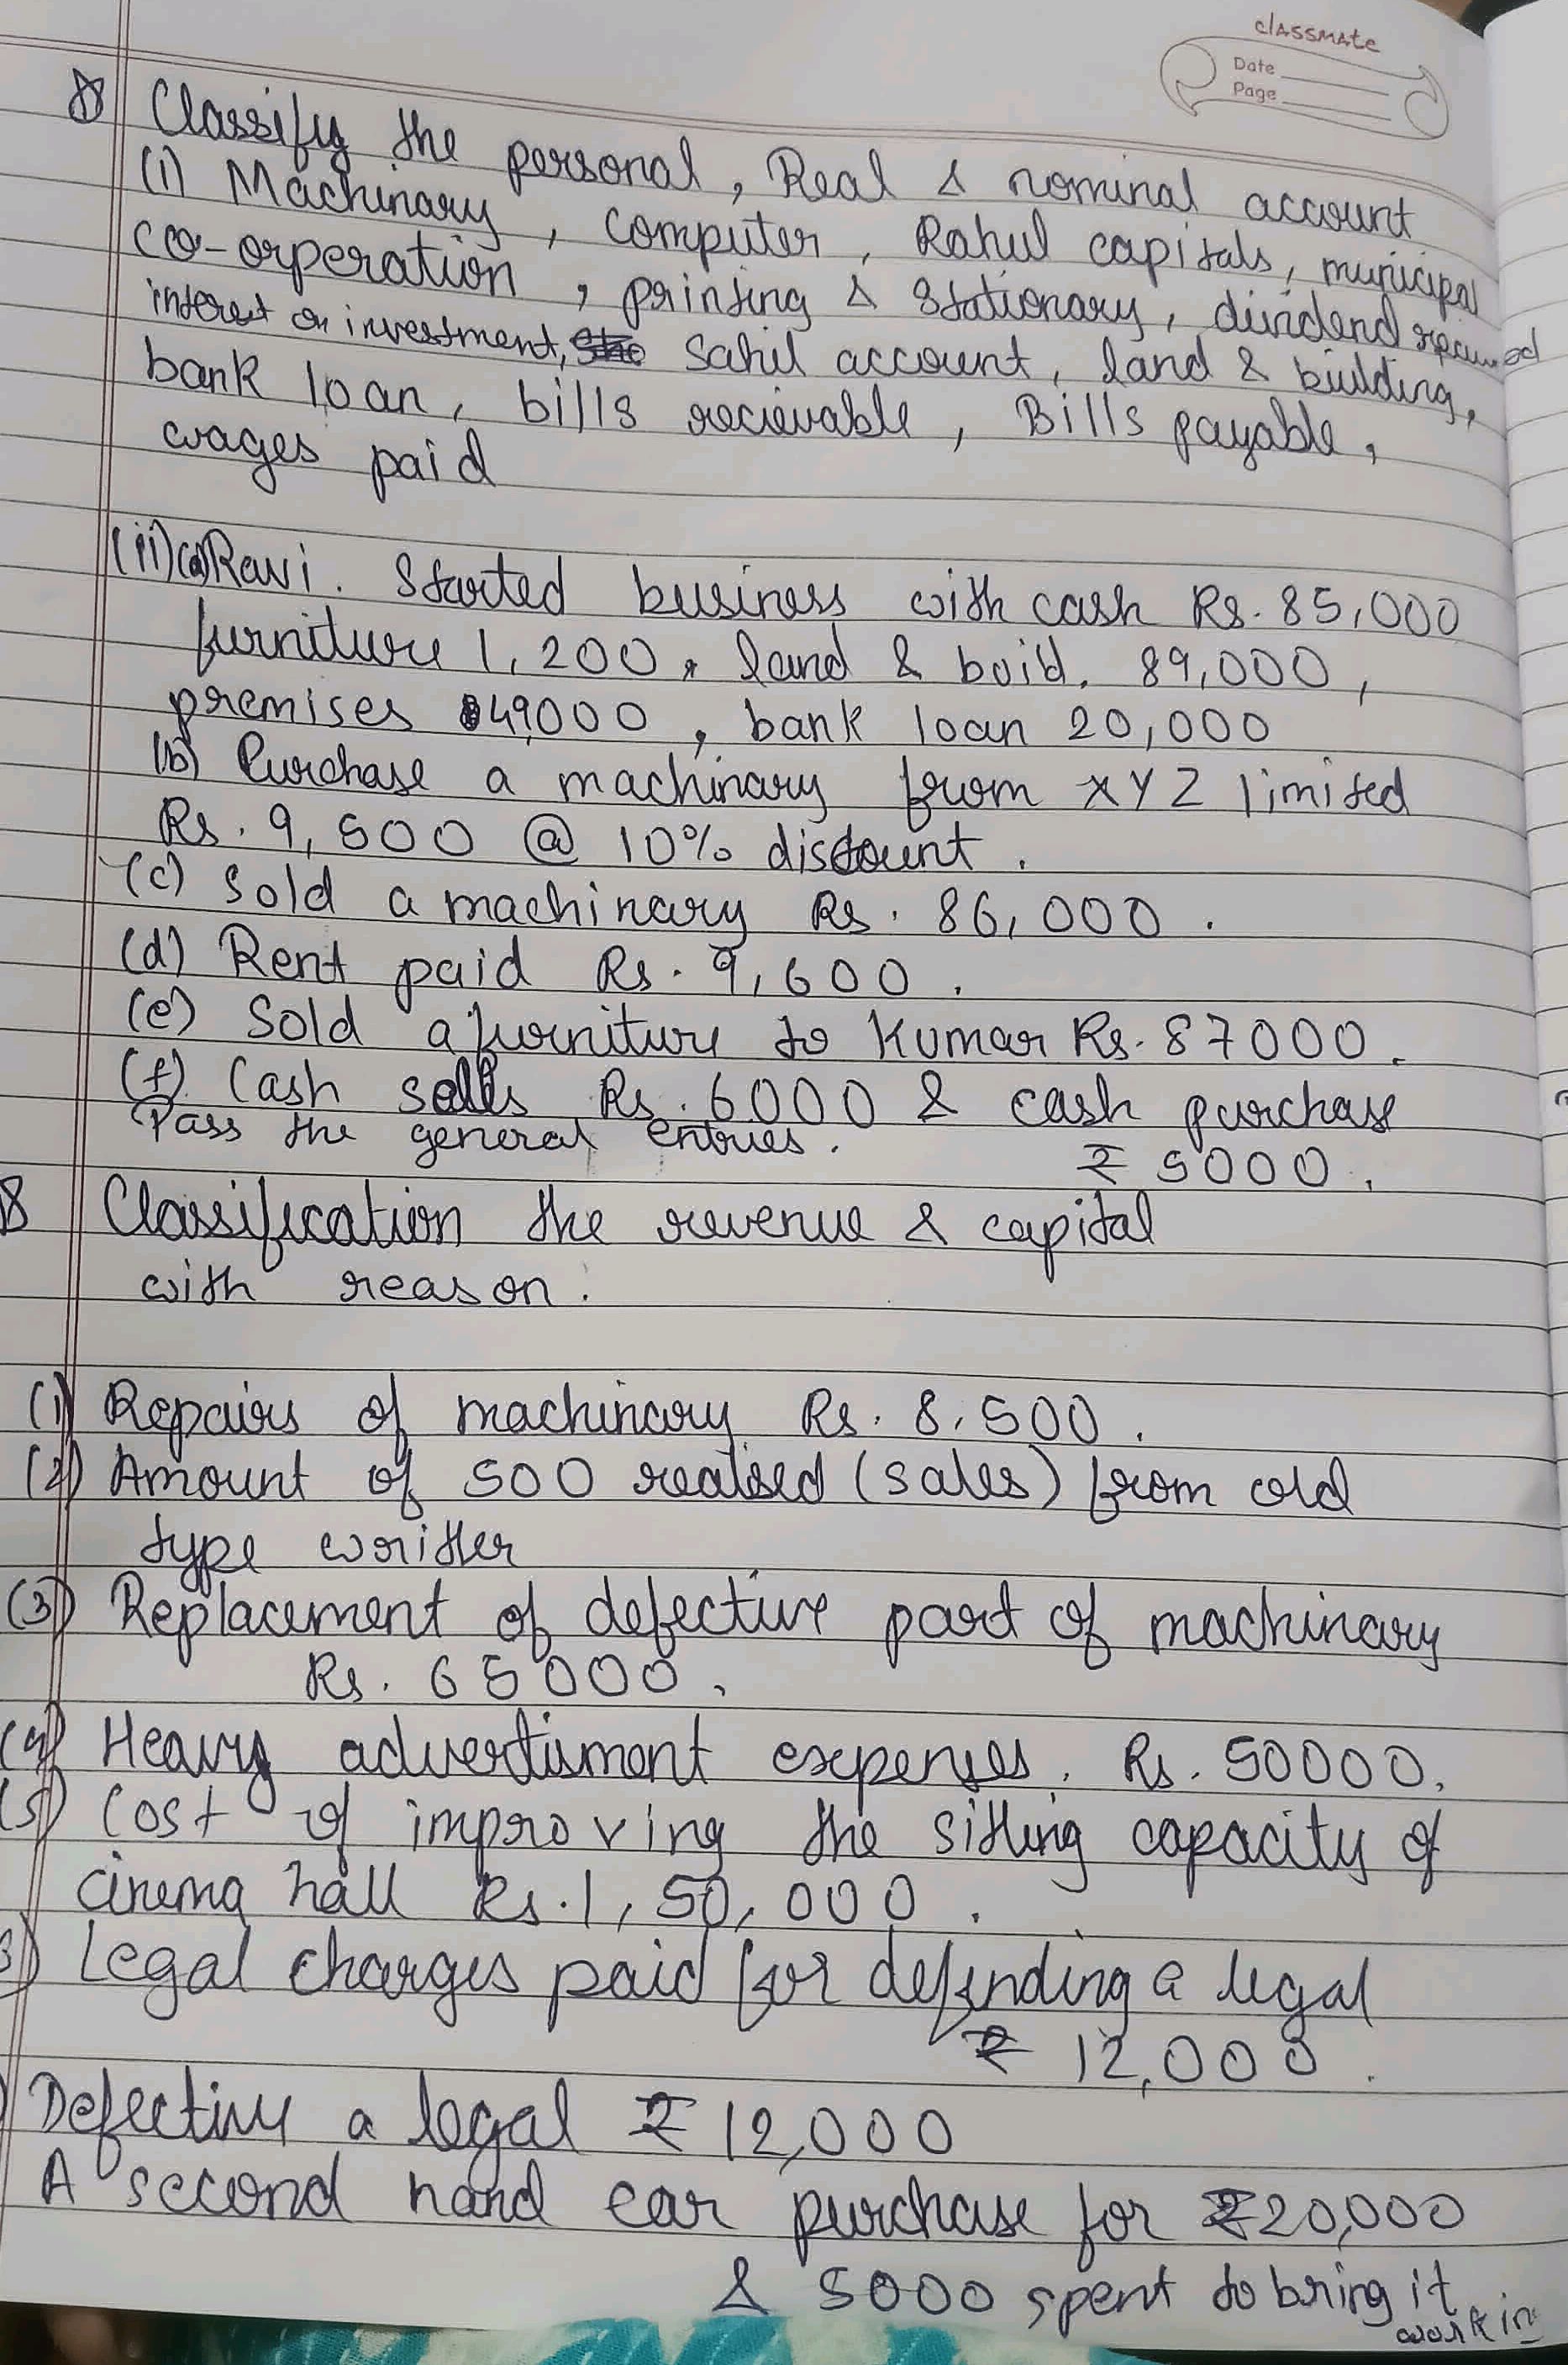 classmate
Date
Page
Classify the personal, Real & nominal account
(i) Machinary, computer, Rahul capitals, municipal
co-orperation, printing & stationary, dividend recived
interest on investment, Sahil account, land & building,
bank loan, bills recievable, Bills payable,
wages paid
(ii)(a)Ravi. Started business with cash Rs. 85,000
furniture 1,200, land & buid. 89,000,
premises 49000, bank loan 20,000
(b) Purchase a machinary from XYZ limited
Rs. 9,500 @ 10% discount.
(c) Sold a machinary Rs. 86,000.
(d) Rent paid Rs. 9,600.
(e) Sold a furniture to Kumar Rs. 87000.
(f) Cash sells Rs. 6000 & cash purchase
₹ 5000.
Pass the general entries.
Classification the revenue & capital
with reason.
(1) Repairs of machinary Rs. 8,500.
(2) Amount of 500 realised (sales) from old
type writter
(3) Replacement of defective part of machinary
Rs. 65000.
(4) Heavy advertisment expenses. Rs. 50000.
(5) Cost of improving the sitting capacity of
cinema hall Rs. 1,50,000.
Legal charges paid for defending a legal
₹ 12,000.
Defective a legal ₹ 12,000
A second hand car purchase for ₹20,000
& 5000 spent to bring it
work in